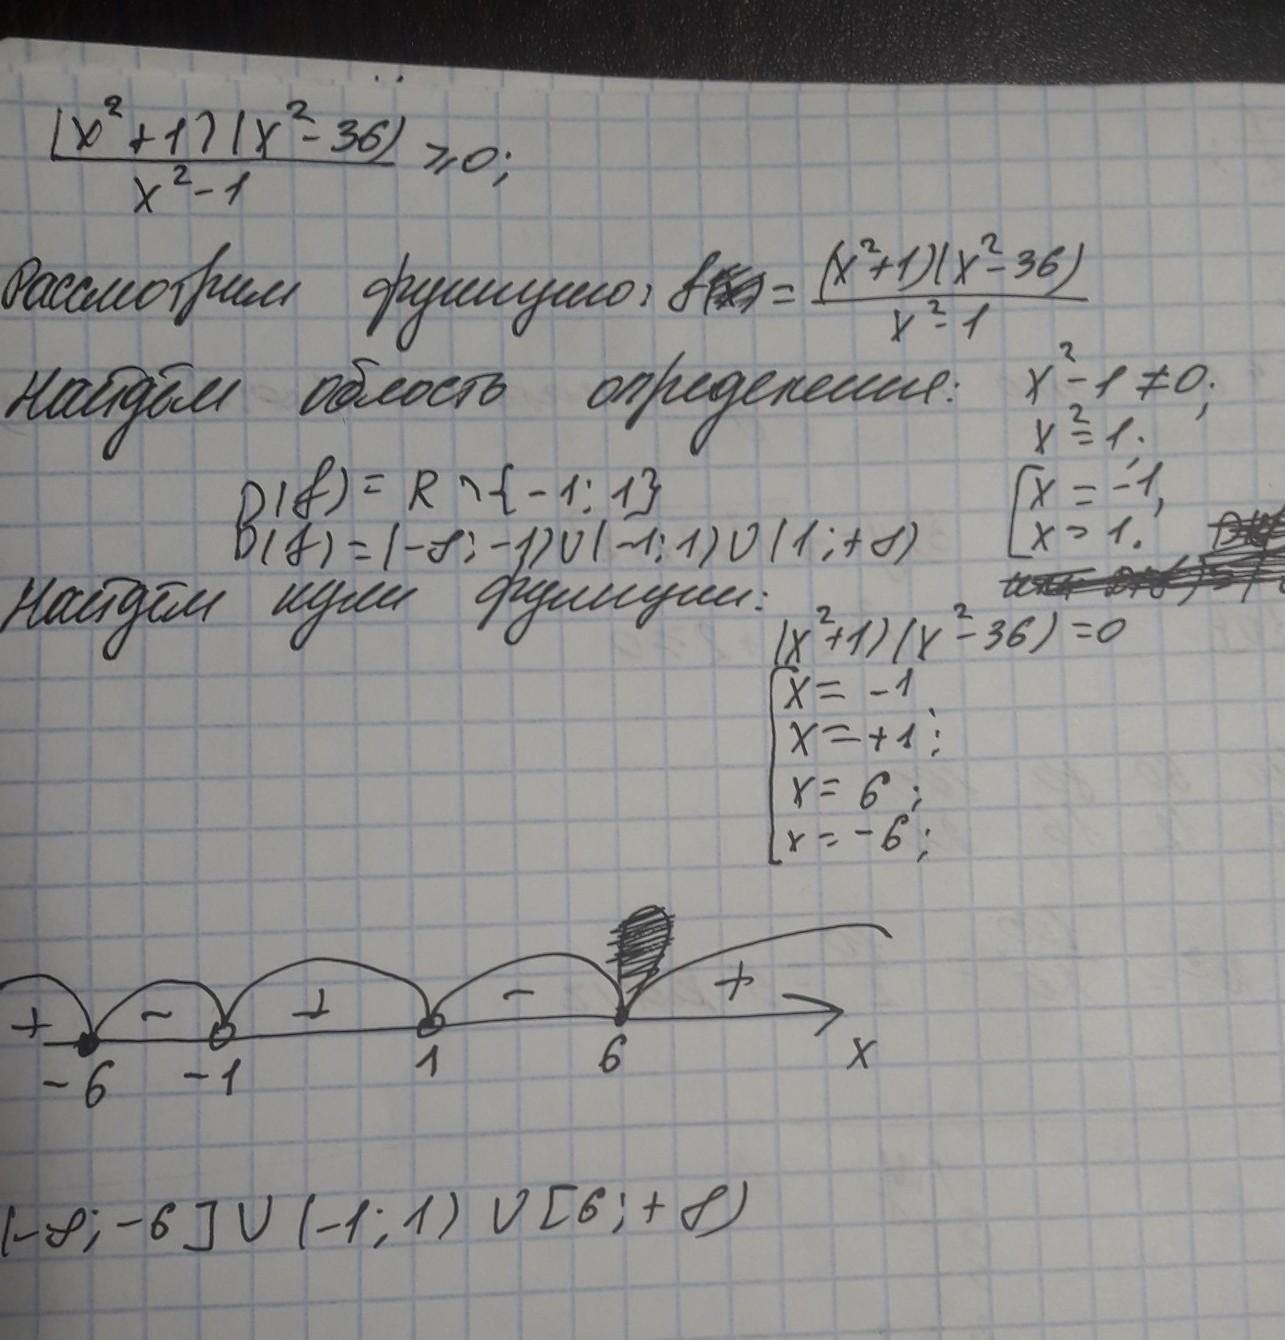 (x²+1)(x²-36)
x²-1
≥0;
Рассмотрим функцию: f(x) = (x²+1)(x²-36)
x²-1
Найдём область определения: x²-1≠0;
x²=1;
D(f) = R \ {-1; 1}
x = -1,
D(f) = (-∞; -1) ∪ (-1; 1) ∪ (1; +∞)
x = 1.
Найдём нули функции:
(x²+1)(x²-36) =0
x = -1
x = +1;
x = 6;
x = -6;
+ - + - +
-6 -1 1 6 x
(-∞; -6] ∪ (-1; 1) ∪ [6; +∞)